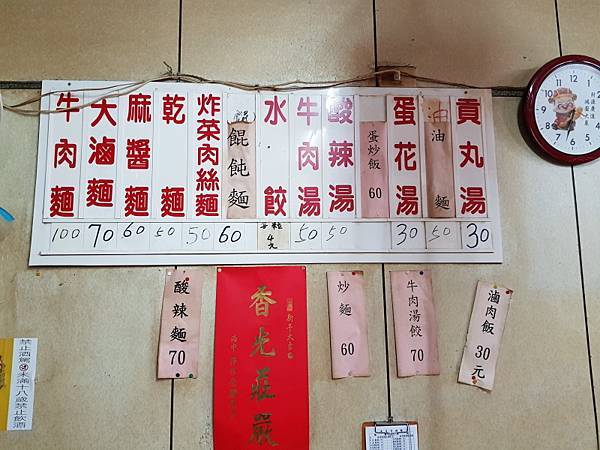 牛肉麵 100
大滷麵 70
麻醬麵 60
乾麵 50
炸菜肉絲麵 50
餛飩麵 60
水餃 每粒4元
牛肉湯 50
酸辣湯 50
蛋炒飯 60
蛋花湯 30
油麵 50
貢丸湯 30
酸辣麵 70
香光莊嚴
新年大吉
炒麵 60
牛肉湯餃 70
滷肉飯 30元
禁止酒駕
未滿十八歲禁止飲酒
12
1
2
3
4
5
6
7
8
9
10
11